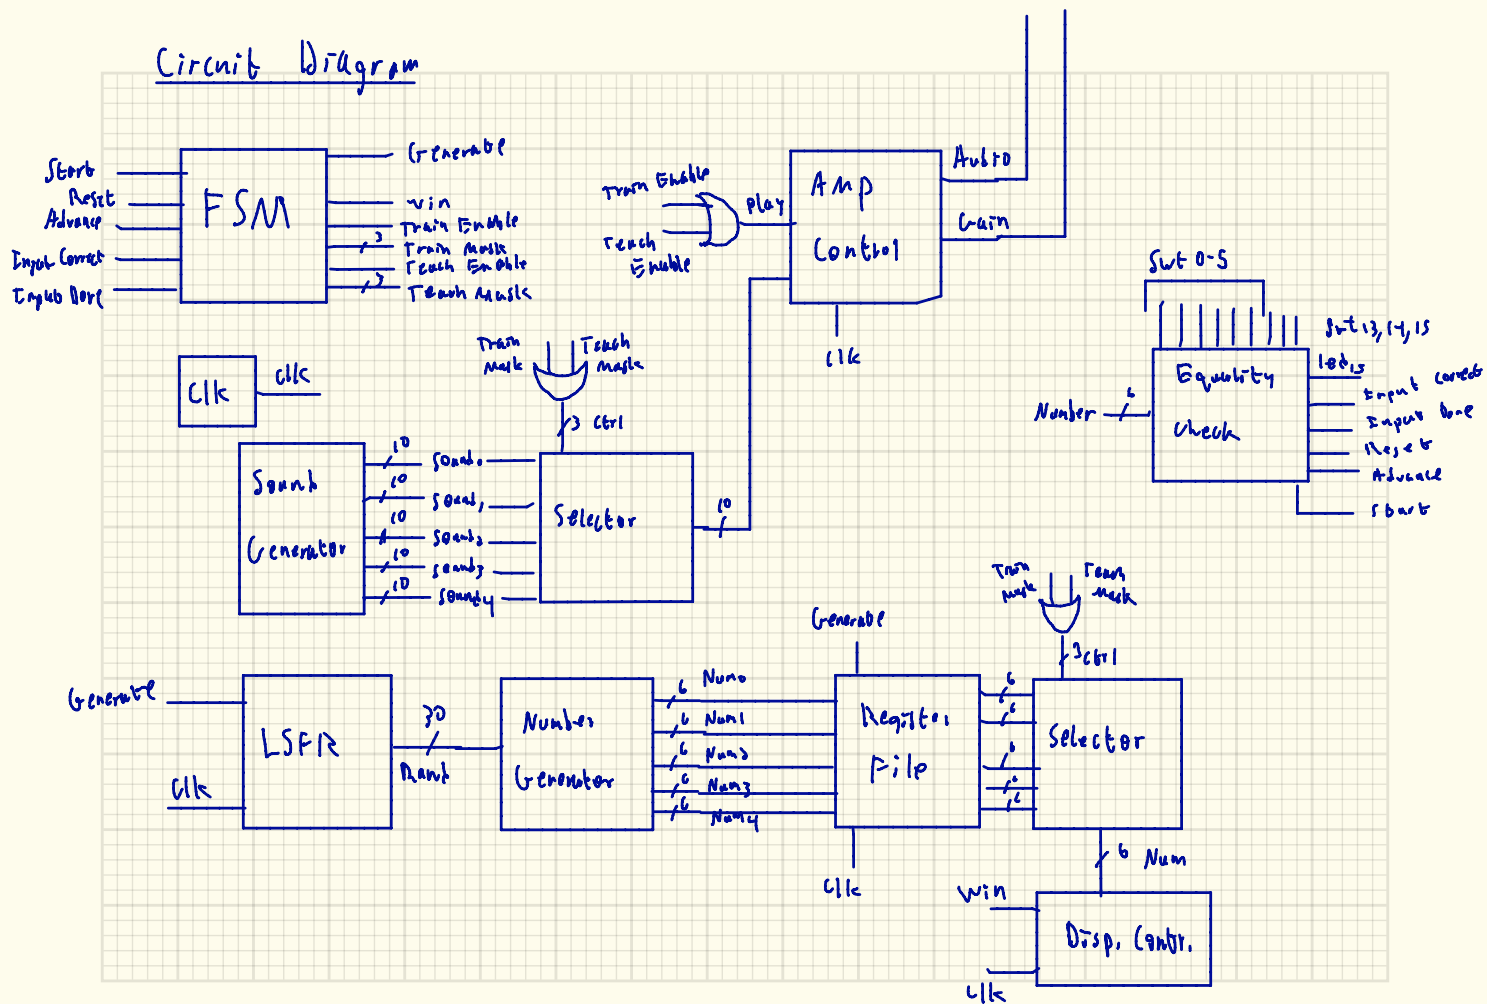 Circuit Diagram
Start
Reset
Advance
Input Correct
Input Done
FSM
Generate
win
Train Enable
3
Train Mask
Teach Enable
3
Teach Mask
Train Enable
Teach
Enable
Play
Amp
Control
Audio
Gain
Clk
Swt 0-5
Swt 13, 14, 15
Number
6
Equality
Check
led15
Input Correct
Input Done
Reset
Advance
Start
Clk
Clk
Train
Mask
Teach
Mask
3 Ctrl
Sound
Generator
10
Sound0
10
Sound1
10
Sound2
10
Sound3
10
Sound4
Selector
10
Generate
Clk
LSFR
30
Rand
Number
Generator
6
Num0
6
Num1
6
Num2
6
Num3
6
Num4
Generate
Register
File
Clk
6
6
6
6
6
Train
Mask
Teach
Mask
3 Ctrl
Selector
6 Num
Win
Clk
Disp. Contr.